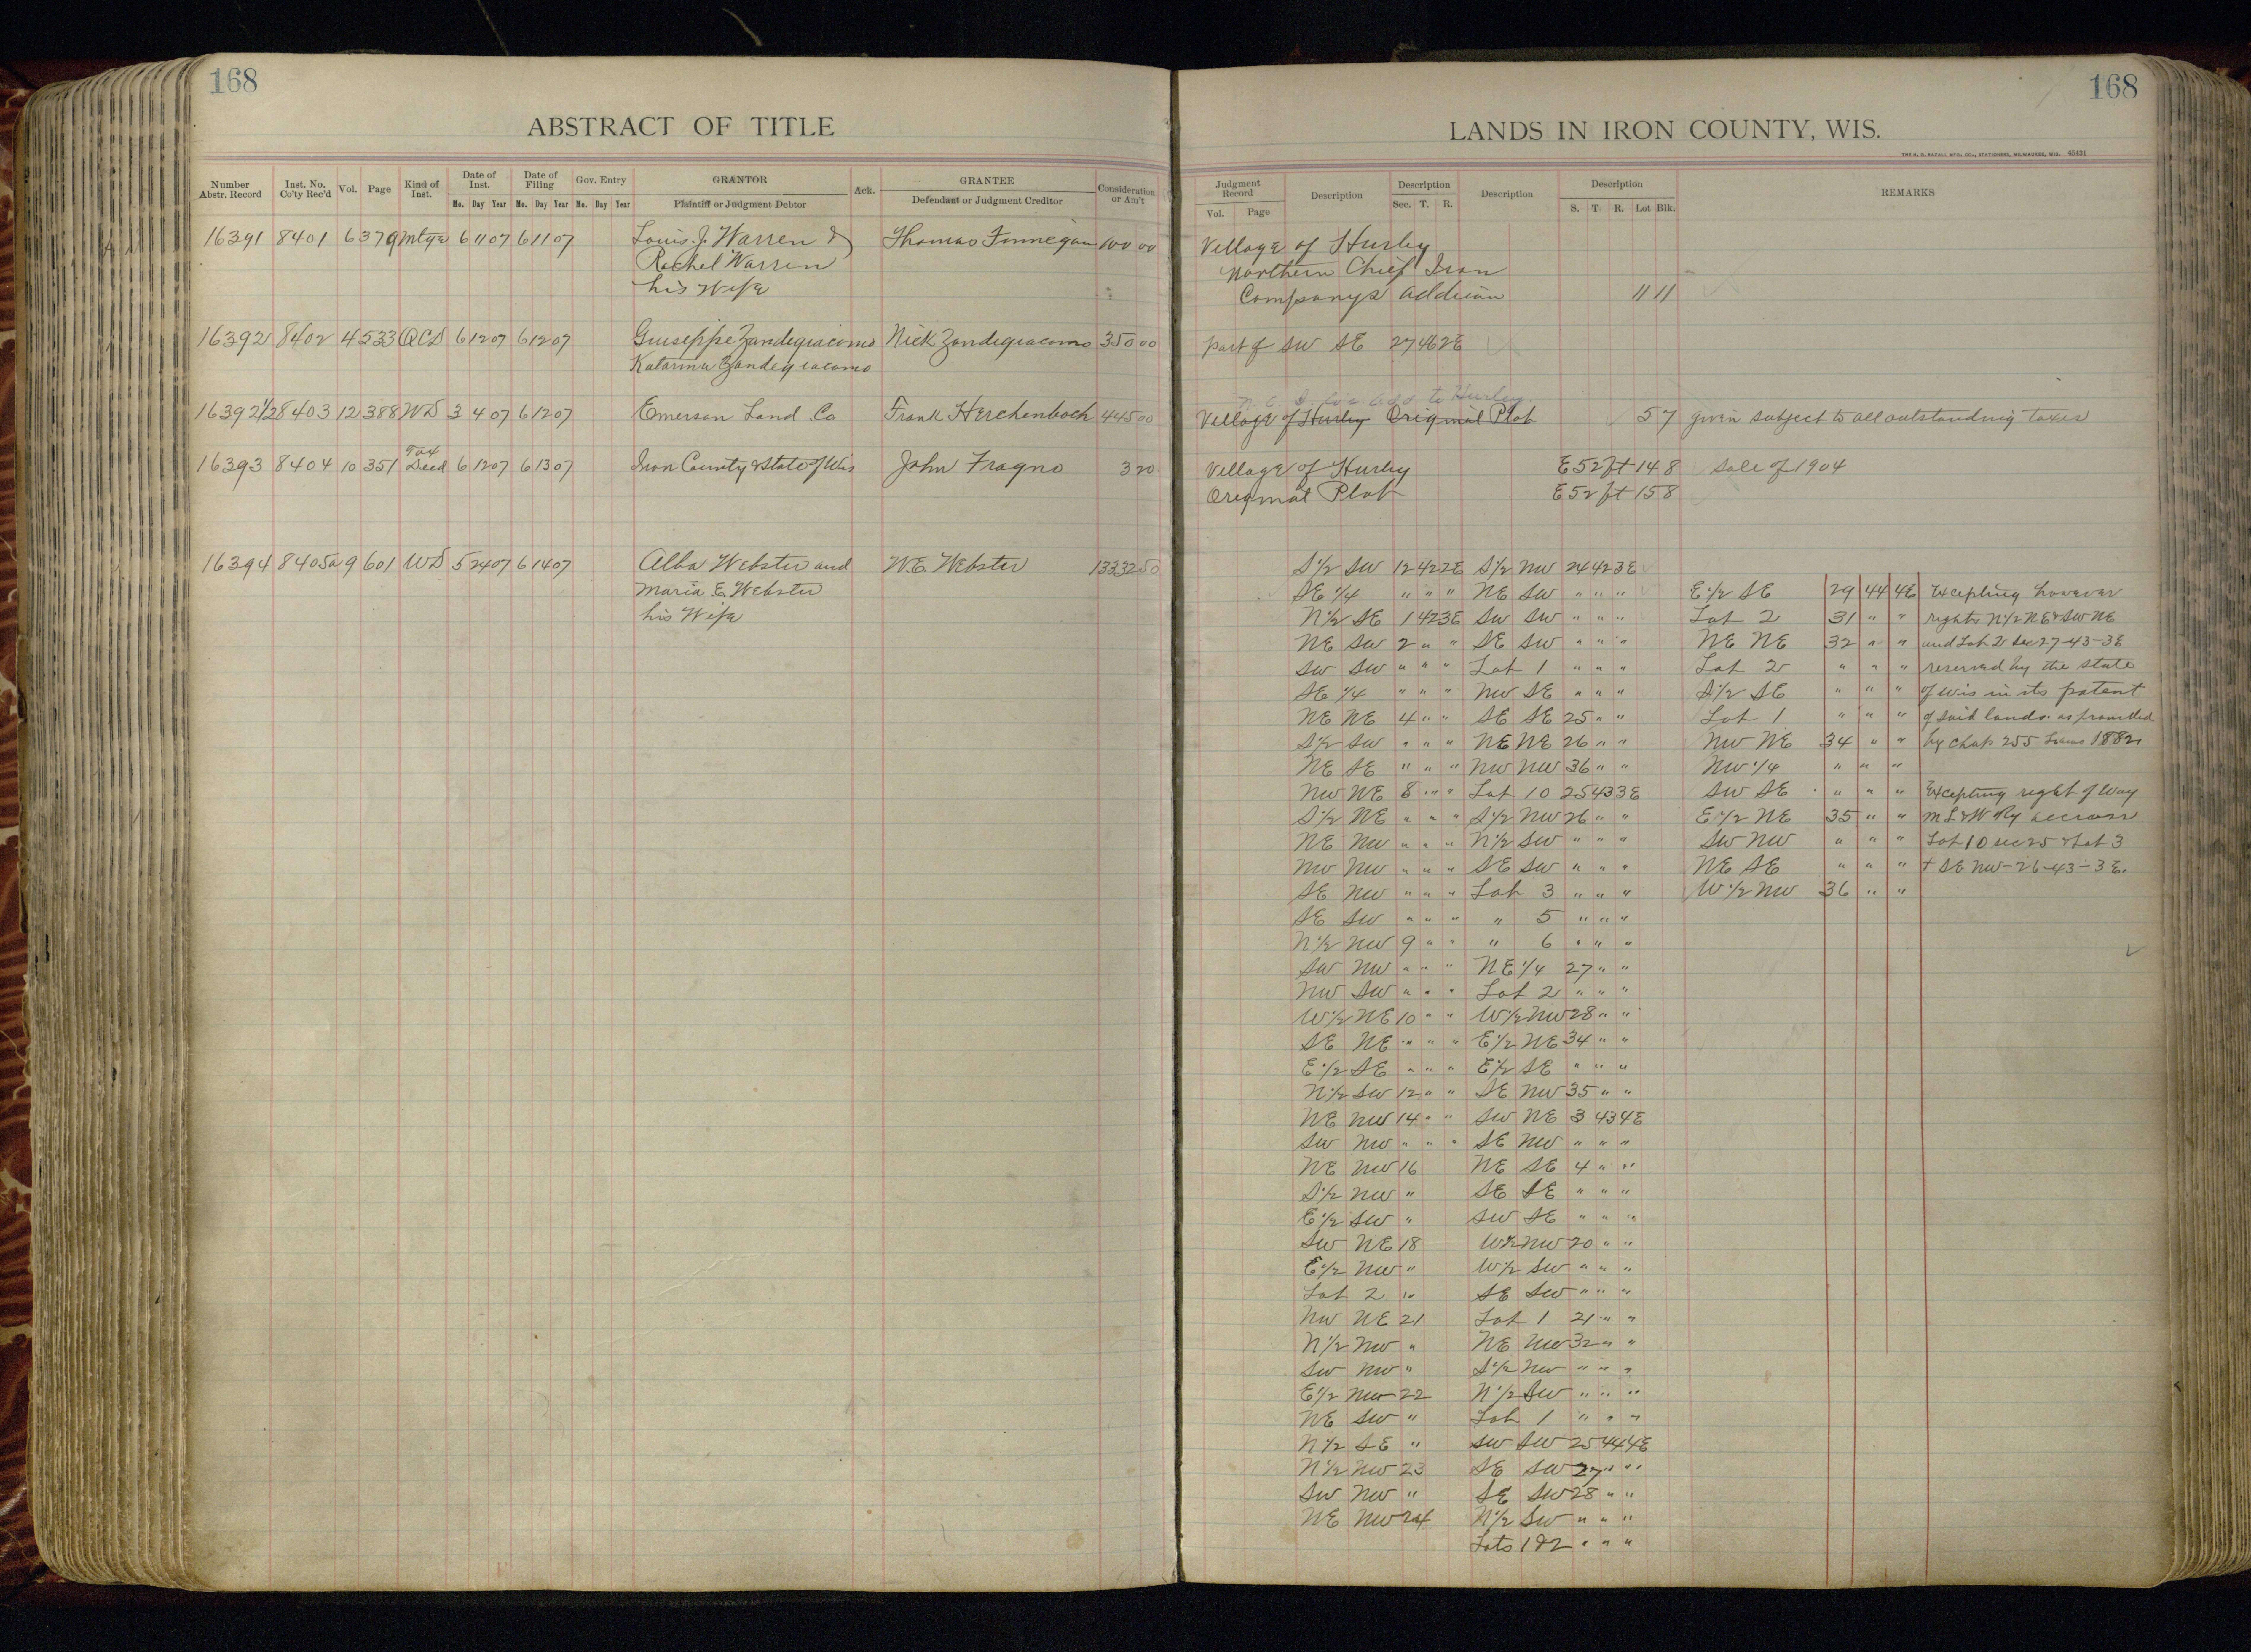 168
ABSTRACT OF TITLE
Number Abstr. Record | Inst. No. Co'ty Rec'd | Vol. | Page | Kind of Inst. | Date of Inst. Mo. Day Year | Date of Filing Mo. Day Year | Gov. Entry Mo. Day Year | GRANTOR Plaintiff or Judgment Debtor | Ack. | GRANTEE Defendant or Judgment Creditor | Consideration or Am't
16391 8401 6 379 Mtge 6 11 07 6 11 07 Louis. J. Warren & Thomas Finnegan 100 00
Rachel Warren
his Wife
16392 8402 4 533 QCD 6 12 07 6 12 07 Guiseppe Zandegiacomo Nick Zandegiacomo 350 00
Katarina Zandegiacomo
16392 1/2 8403 12 388 WD 3 4 07 6 12 07 Emerson Land Co Frank Herchenbach 445 00
16393 8404 10 351 Tax Deed 6 12 07 6 13 07 Iron County & State of Wis John Fragno 3 20
16394 8405a 9 601 WD 5 24 07 6 14 07 Alba Webster and W.E. Webster 13332 50
Maria E. Webster
his Wife
168
LANDS IN IRON COUNTY, WIS.
THE H. G. RAZALL MFG. CO., STATIONERS, MILWAUKEE, WIS. 45431
Judgment Record Vol. Page | Description | Description Sec. T. R. | Description | Description S. T. R. Lot Blk. | REMARKS
Village of Hurley
Northern Chief Iron
Companys addition 11 11
part of SW SE 27 46 2E
add to Hurley
Village of Hurley Original Plat 5 7 given subject to all outstanding taxes
Village of Hurley E 52 ft 14 8 Sale of 1904
Original Plat E 52 ft 15 8
S 1/2 SW 12 42 2E S 1/2 NW 24 42 3E
SE 1/4 " " " NE SW " " " E 1/2 SE 29 44 4E Excepting however
N 1/2 SE 1 42 3E SW SW " " " Lot 2 31 " " rights N 1/2 NE & SW NE
NE SW 2 " " SE SW " " " NE NE 32 " " and Lot 2 Sec 27-43-3E
SW SW " " " Lot 1 " " " Lot 2 " " " reserved by the State
SE 1/4 " " " NW SE " " " S 1/2 SE " " " of Wis in its patent
NE NE 4 " " SE SE 25 " " Lot 1 " " " of said lands as provided
S 1/2 SW " " " NE NE 26 " " NW NE 34 " " by Chap 255 Laws 1882
NE SE " " " NW NW 36 " " NW 1/4 " " "
NW NE 8 " " Lot 10 25 43 3E SW SE " " " Excepting right of Way
S 1/2 NE " " " S 1/2 NW 26 " " E 1/2 NE 35 " " M L S & W Ry accross
NE NW " " " N 1/2 SW " " " SW NW " " " Lot 10 sec 25 & Lot 3
NW NW " " " SE SW " " " NE SE " " " + SE NW-26-43-3E.
SE NW " " " Lot 3 " " " W 1/2 NW 36 " "
SE SW " " " " 5 " " "
N 1/2 NW 9 " " " 6 " " "
SW NW " " " NE 1/4 27 " "
NW SW " " " Lot 2 " " "
W 1/2 NE 10 " " W 1/2 NW 28 " "
SE NE " " " E 1/2 NE 34 " "
E 1/2 SE " " " E 1/2 SE " " "
N 1/2 SW 12 " " SE NW 35 " "
NE NW 14 " " SW NE 3 43 4E
SW NW " " " SE NW " " "
NE NW 16 NE SE 4 " "
S 1/2 NW " SE SE " " "
E 1/2 SW " SW SE " " "
SW NE 18 W 1/2 NW 20 " "
E 1/2 NW " W 1/2 SW " " "
Lot 2 " SE SW " " "
NW NE 21 Lot 1 21 " "
N 1/2 NW " NE NW 32 " "
SW NW " S 1/2 NW " " "
E 1/2 NW 22 N 1/2 SW " " "
NE SW " Lot 1 " " "
N 1/2 SE " SW SW 25 44 4E
N 1/2 NW 23 SE SW 27 " "
SW NW " SE SW 28 " "
NE NW 24 N 1/2 SW " " "
Lots 1 & 2 " " "